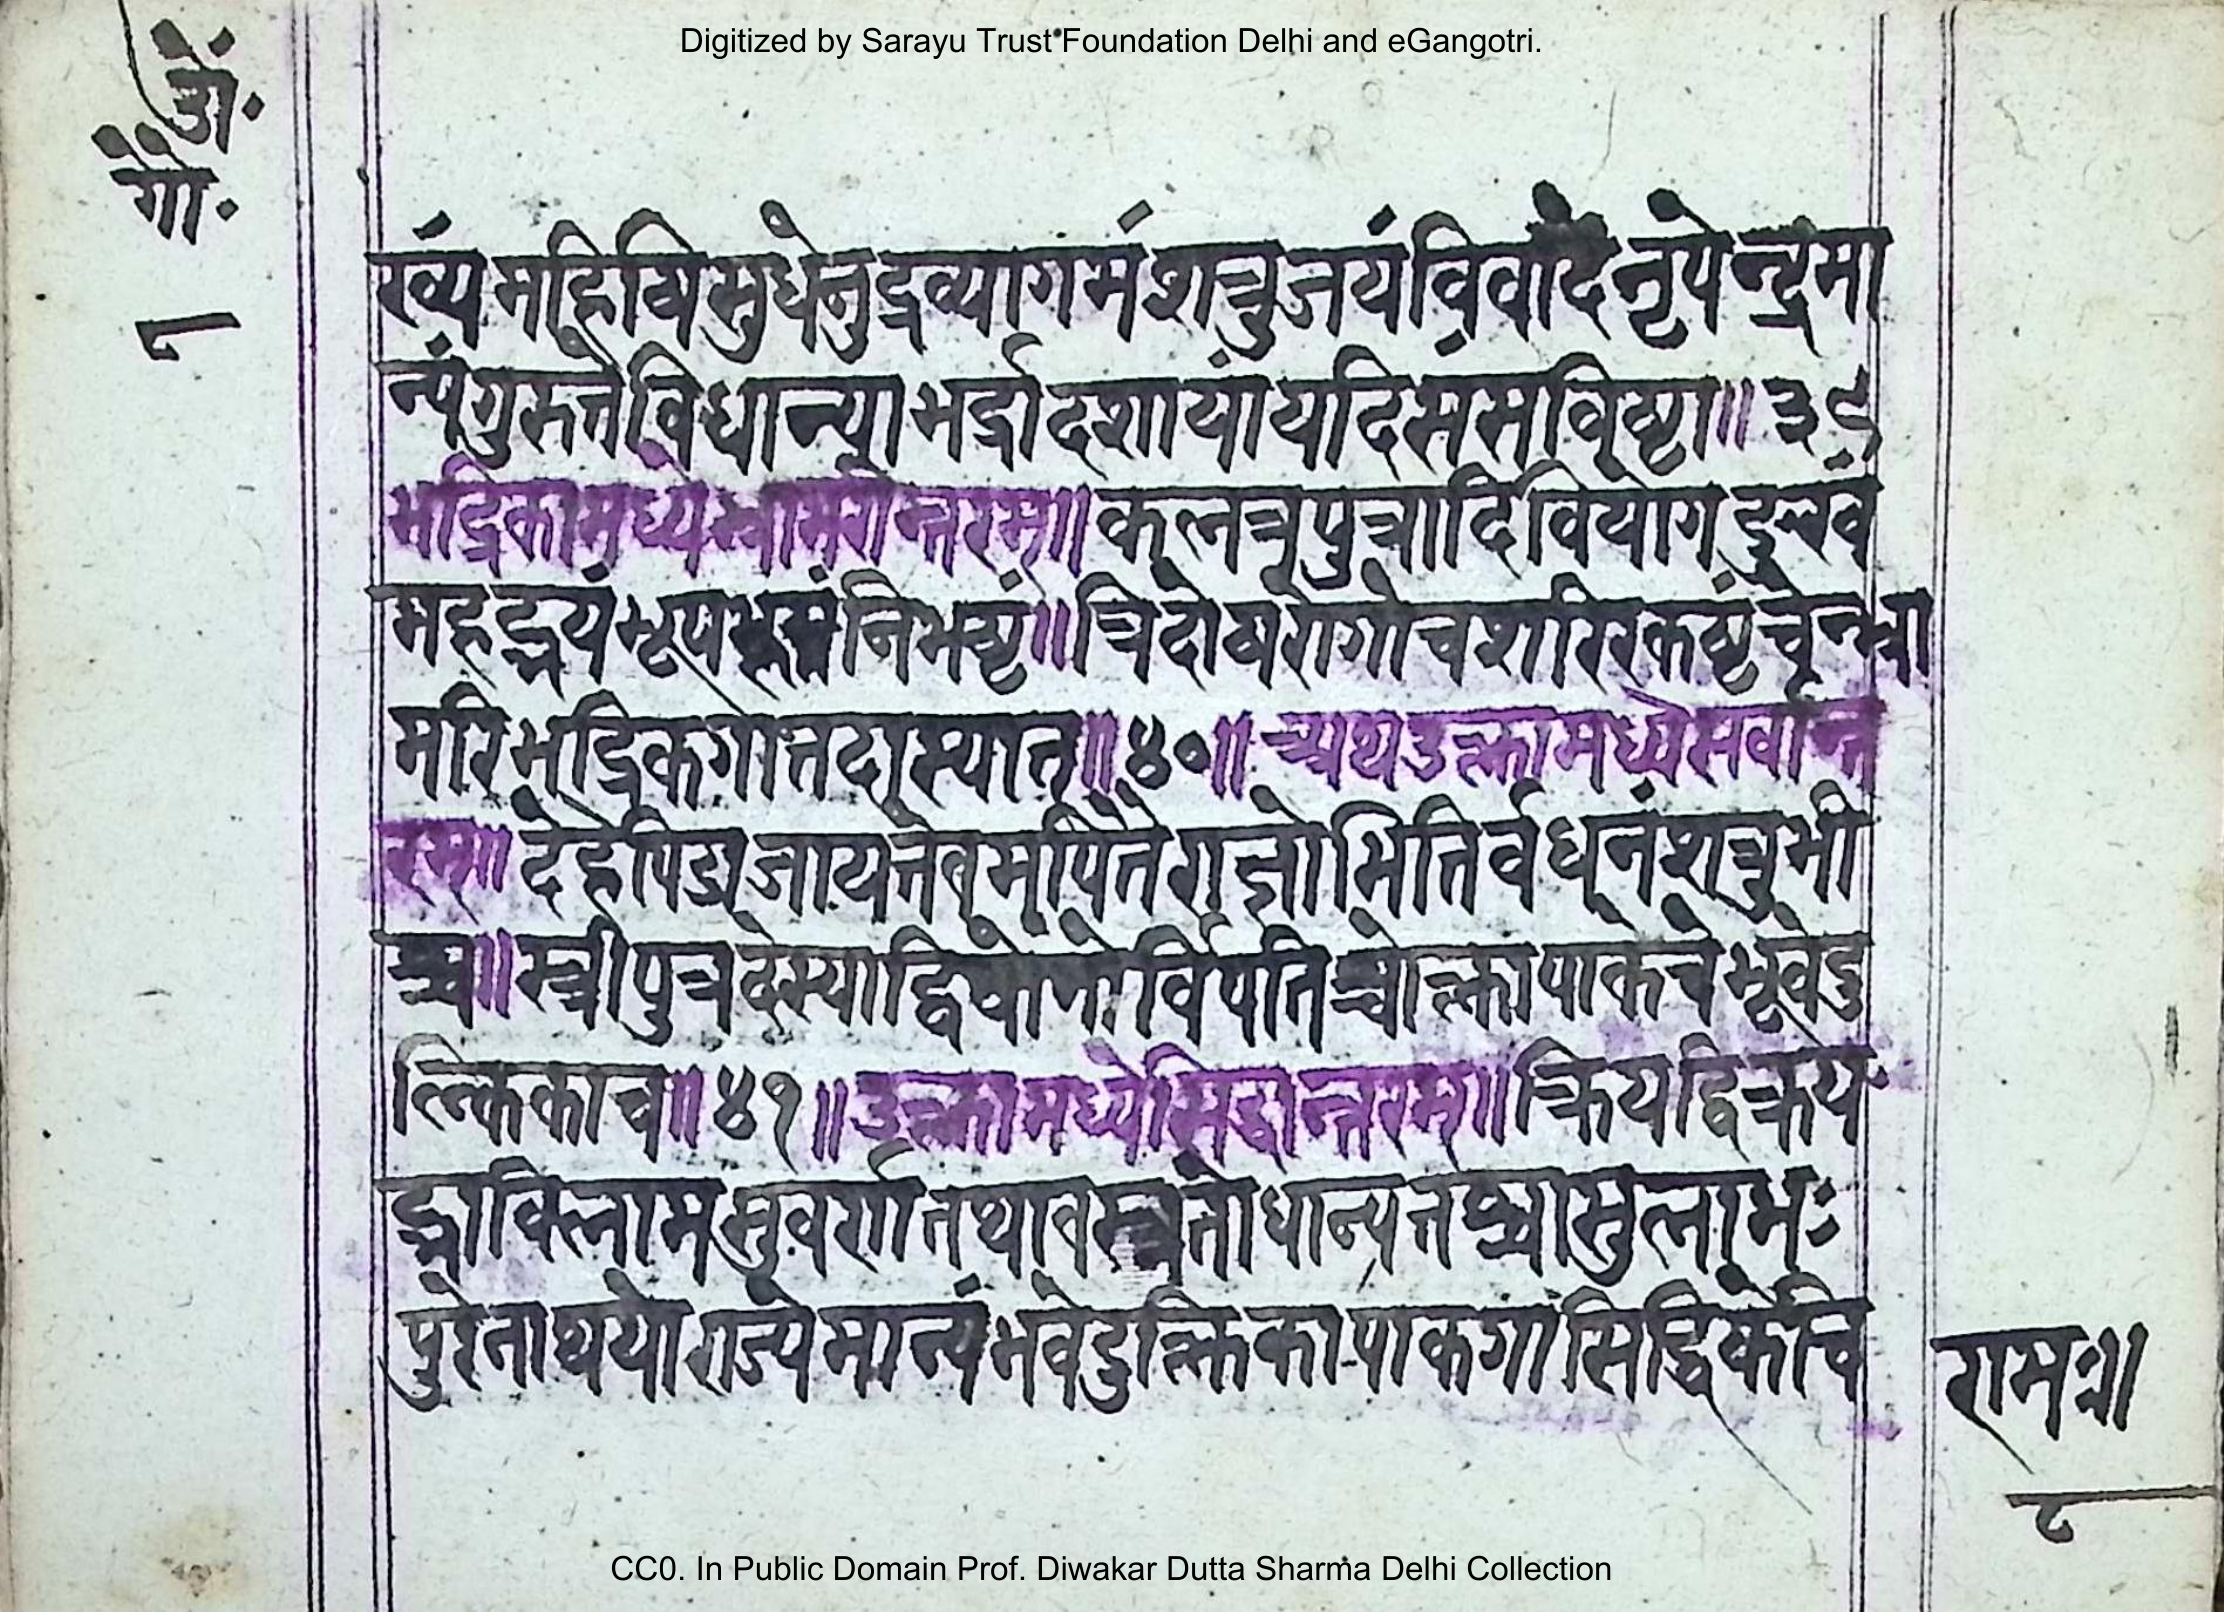 Digitized by Sarayu Trust Foundation Delhi and eGangotri.
ख्यं महिषि सुधेनुद्रव्यागमं शत्रुजयं विवादं नृपेन्द्रमा
न्यं गुरुत्ते विधान्या भर्द्रा दशायां यदि संसविष्टा॥ ३९
भद्रिकामध्ये भ्रामर्यान्तरम्॥ कलत्रपुत्रादिवियोगदुःखं
महद्भयं भूप निभष्टं॥ त्रिदोषरोगो च शारिरकष्टं चेन्भ्रा
मरि भद्रिकगा तदा स्यात्॥ ४०॥ अथ उल्कामध्ये सर्वान्त
रम्॥ देहे पिड्य जायत्ते राज्ञो भितिर्वधनं शत्रुभी
श्च॥ स्त्रीपुत्र स्याद्वियोगो र्विपतिश्चोल्का पाके च भवेदु
ल्किका च॥ ४१॥ उल्कामध्ये सिद्धान्तरम्॥ क्रियद्विक्रय
सुवर्ण तथा वस्त्र तो धान्य सुलाभः
पुरेनाथयो राज्ये मान्यं भवेदुल्किका पाकगा सिद्धिके चि
राम॥
८
CC0. In Public Domain Prof. Diwakar Dutta Sharma Delhi Collection